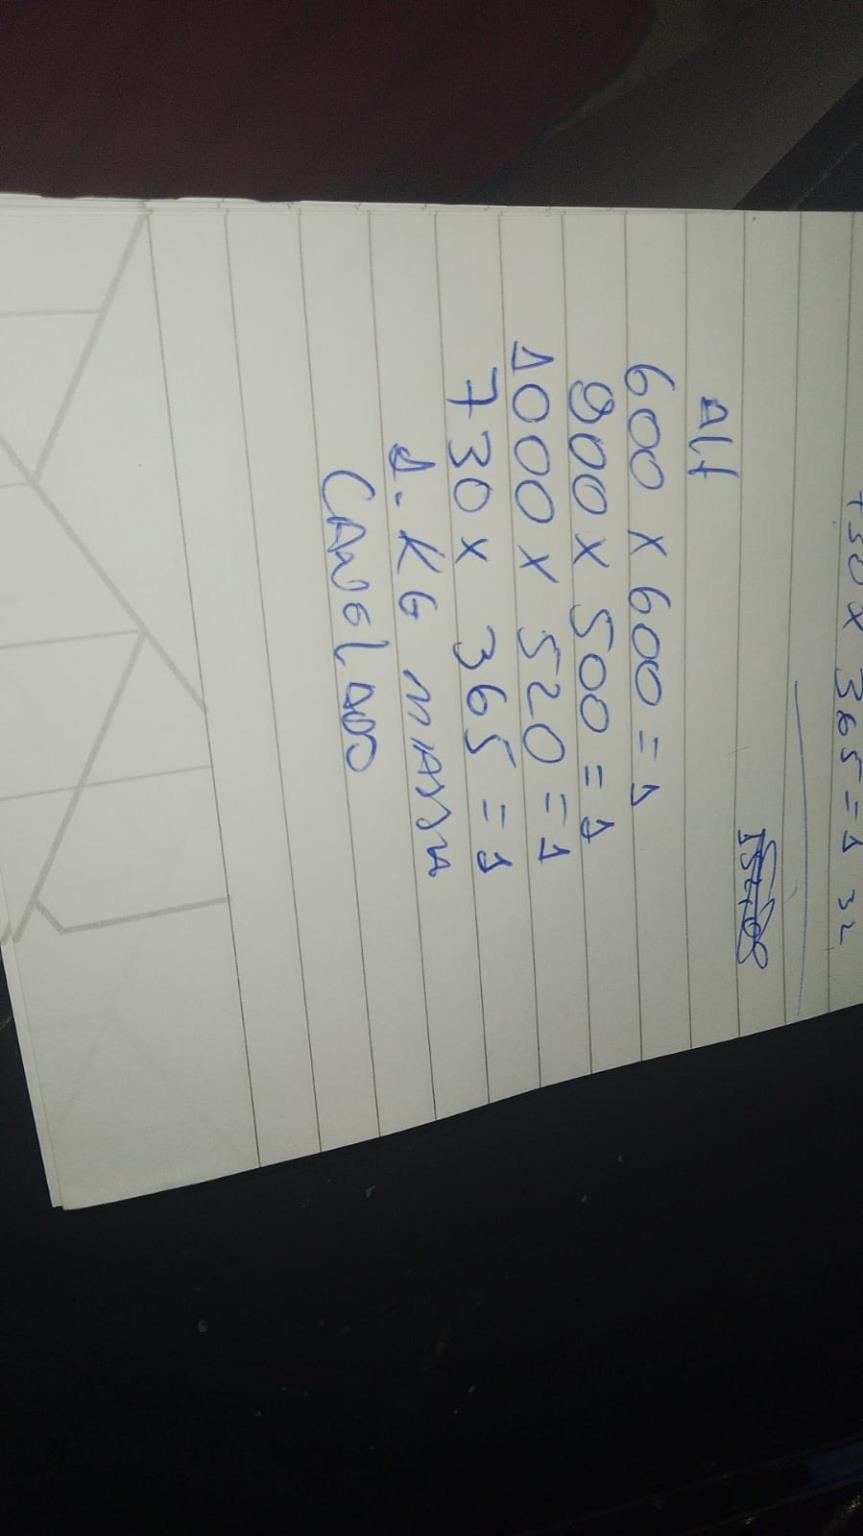 730 x 365 = 1 32
Alt
600 x 600 = 1
900 x 500 = 1
1000 x 520 = 1
730 x 365 = 1
1. KG MASSA
CANELADO